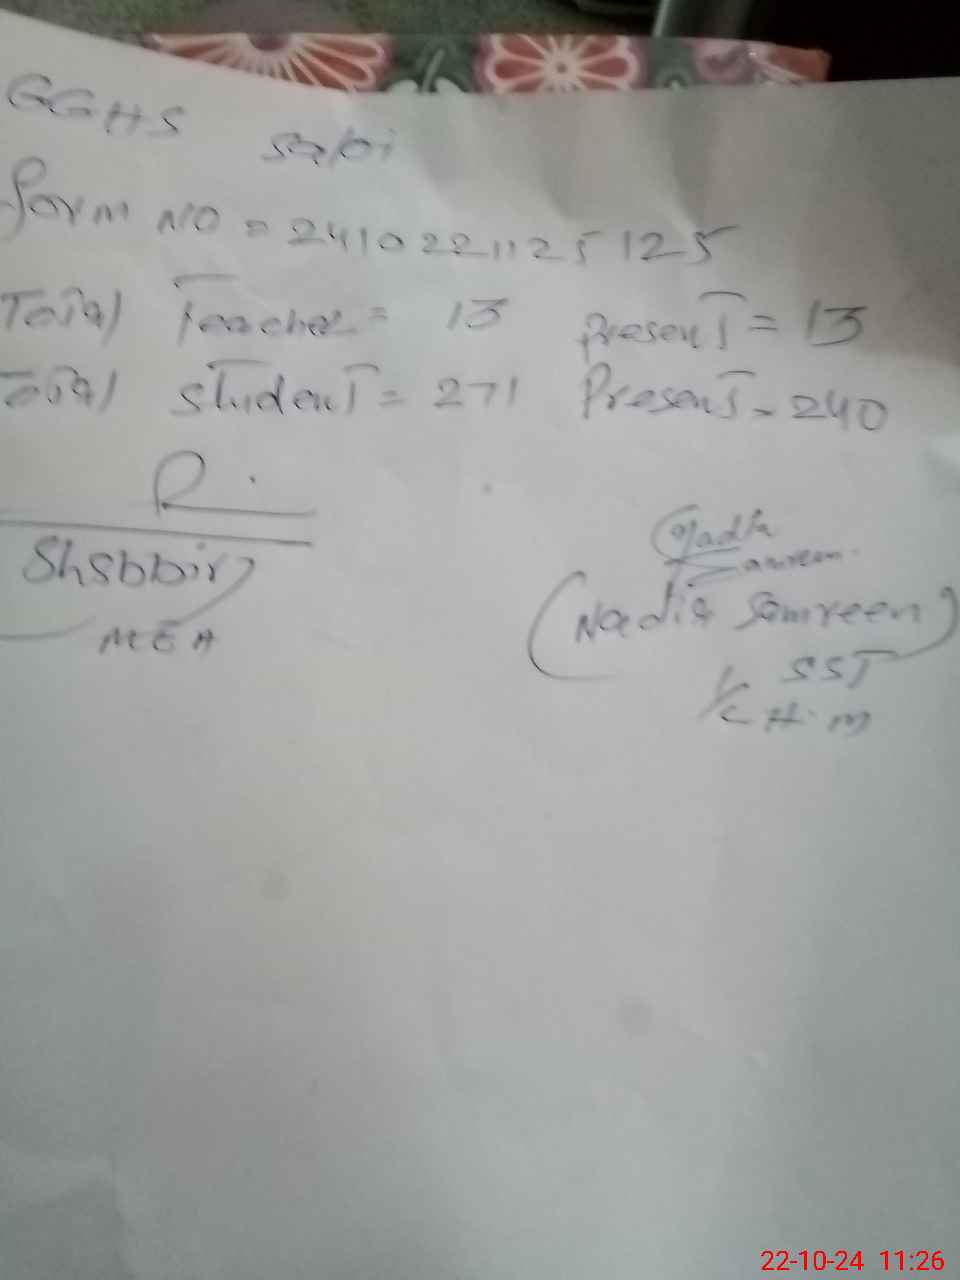 GGHS Sabi
Form NO = 2410221125125
Total Teacher = 13 Present = 13
Total Student = 271 Present - 240
Shsbbir
MEA
Nadia
Samreen
(Nadia Samreen)
SST
I/C H.M
22-10-24 11:26